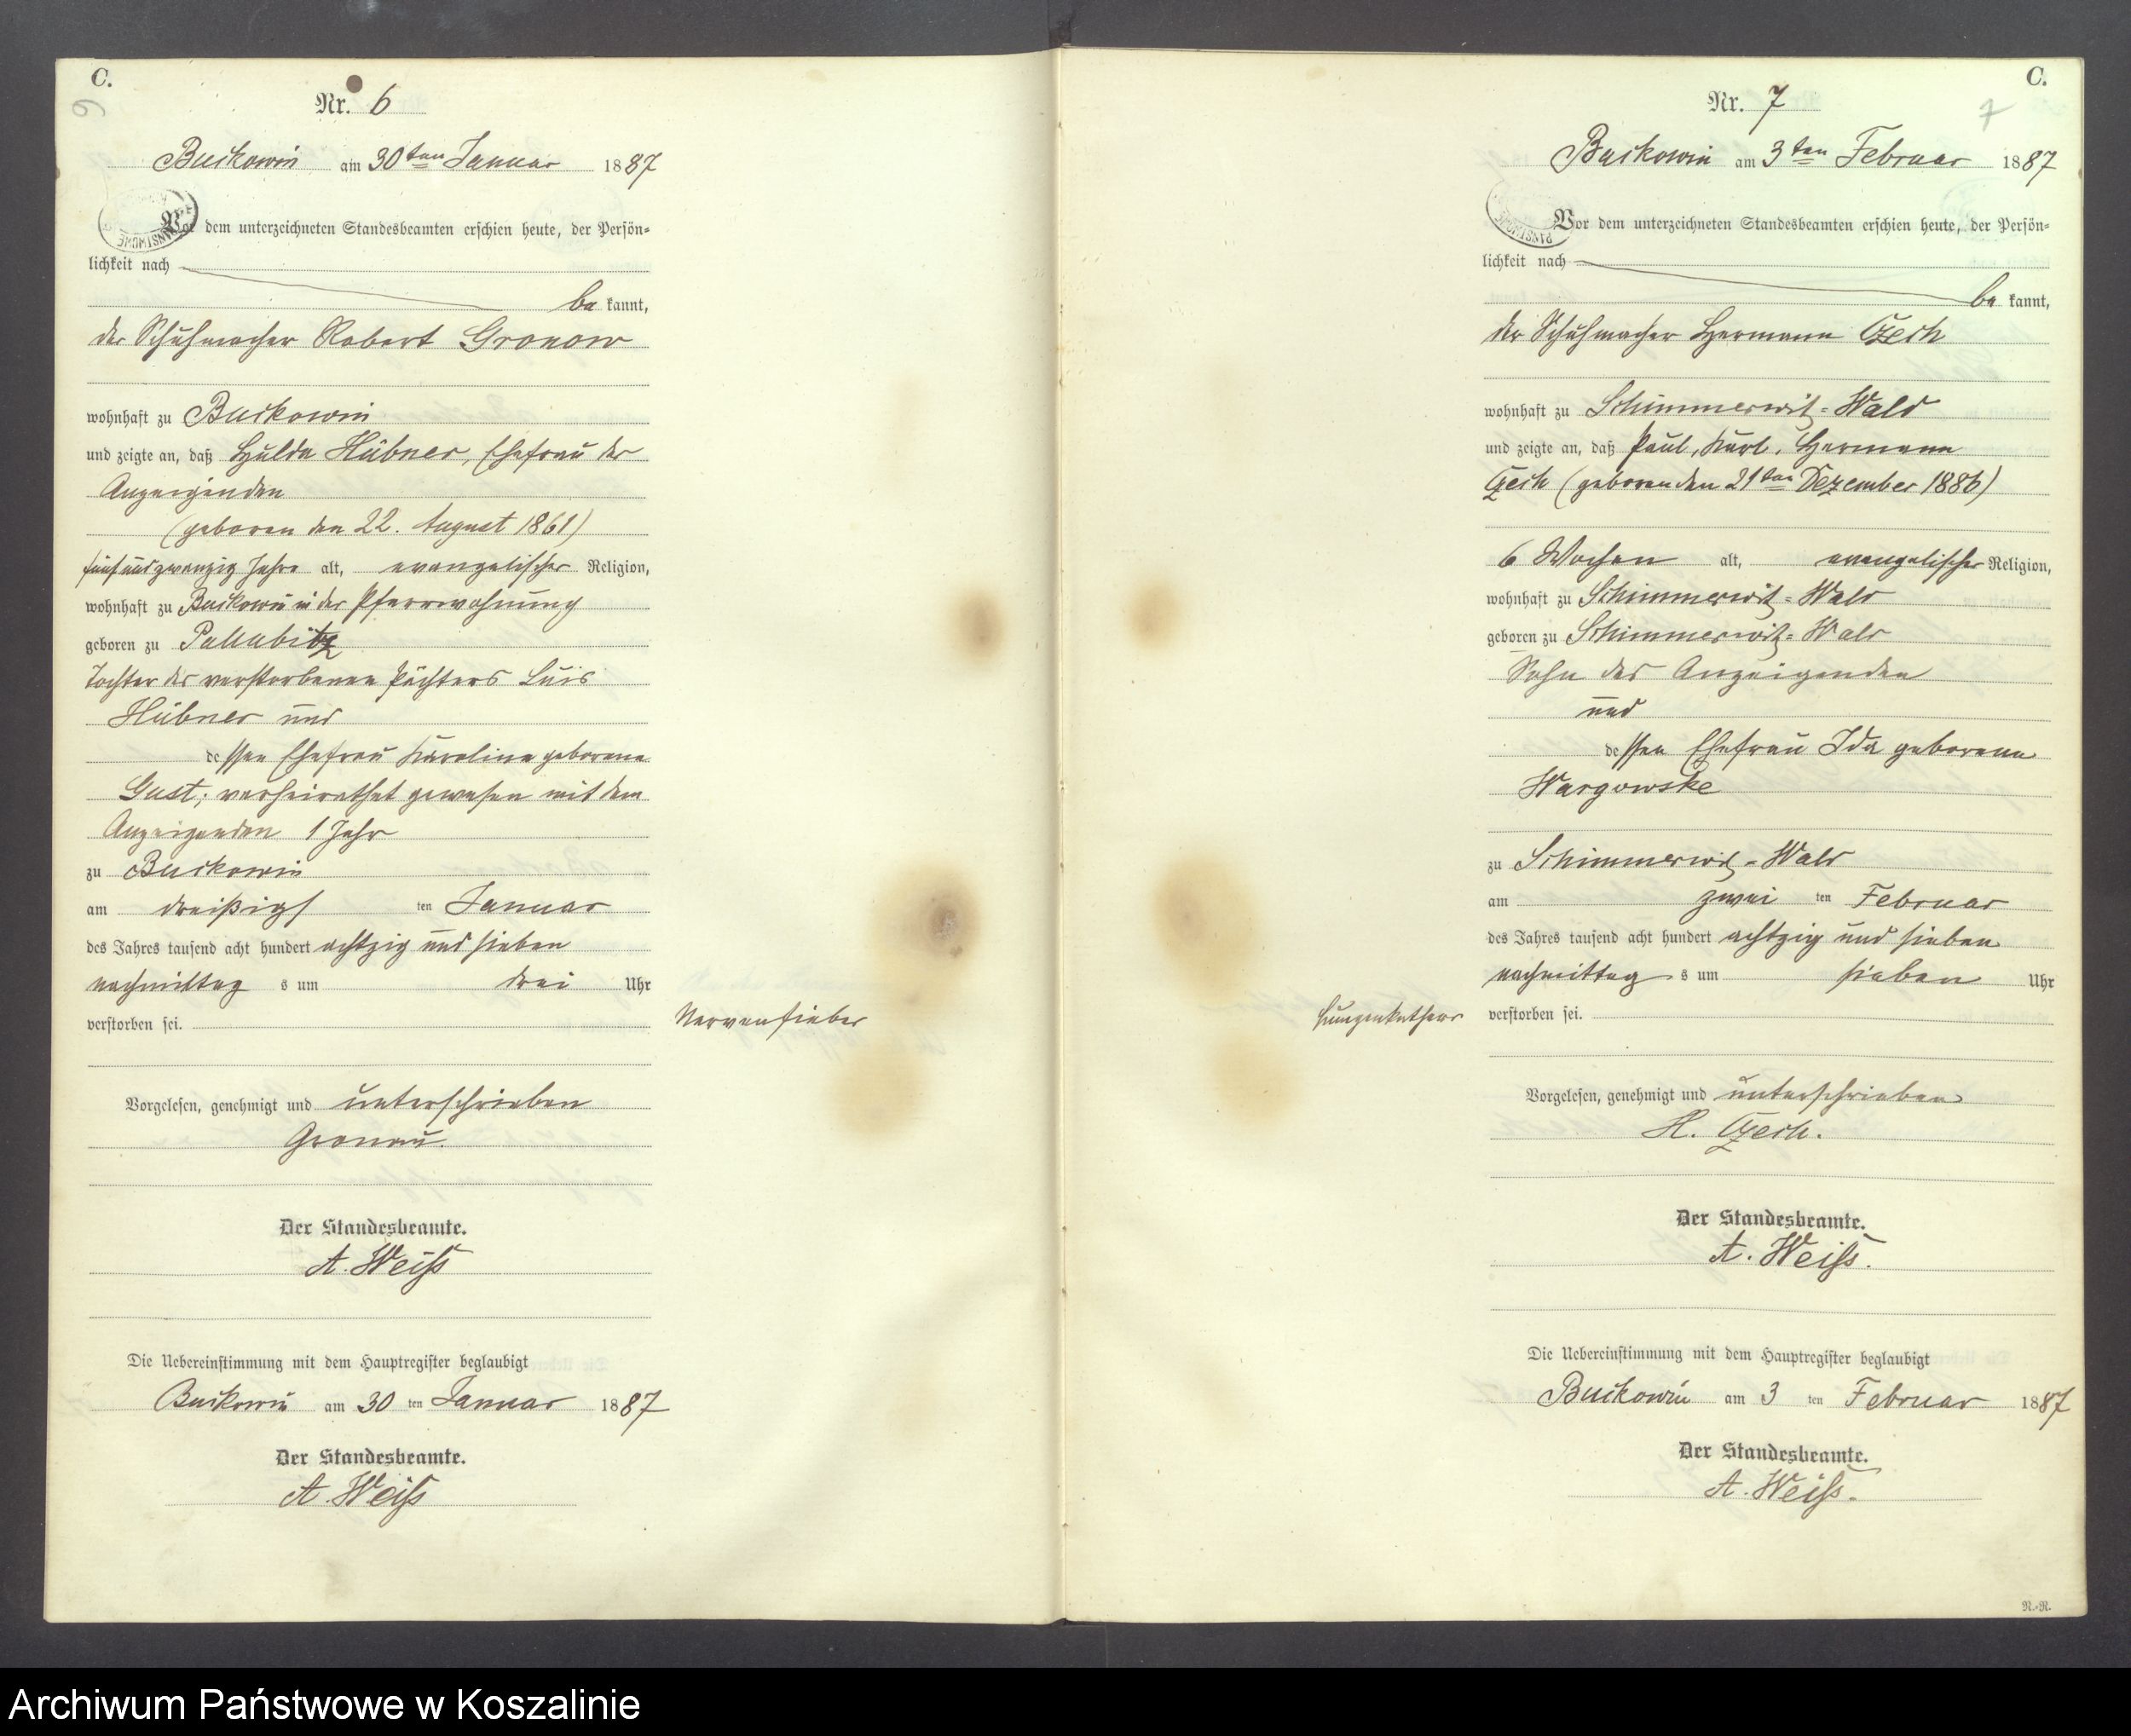 C.
6
Nr. 6
Buckowin am 30ten Januar 1887
Vor dem unterzeichneten Standesbeamten erschien heute, der Persön-
lichkeit nach
be kannt,
der Schuhmacher Robert Gronow
wohnhaft zu Buckowin
und zeigte an, daß Hulda Hübner, Ehefrau des
Anzeigenden
(geboren den 22. August 1861)
fünfundzwanzig Jahre alt, evangelischer Religion,
wohnhaft zu Buckowin in der Pfarrwohnung
geboren zu Pallubitz
Tochter des verstorbenen Pächters Luis
Hübner und
dessen Ehefrau Karoline geborene
Gust; verheirathet gewesen mit dem
Anzeigenden 1 Jahr
zu Buckowin
am dreißigs ten Januar
des Jahres tausend acht hundert achtzig und sieben
nachmittag s um drei Uhr
verstorben sei.
Nervenfieber
Vorgelesen, genehmigt und unterschrieben
Gronau.
Der Standesbeamte.
A. Weiss
Die Uebereinstimmung mit dem Hauptregister beglaubigt
Buckowin am 30 ten Januar 1887
Der Standesbeamte.
A. Weiss
C.
7
Nr. 7
Buckowin am 3ten Februar 1887
Vor dem unterzeichneten Standesbeamten erschien heute, der Persön-
lichkeit nach
be kannt,
der Schuhmacher Hermann Czech
wohnhaft zu Schimmerwitz-Wald
und zeigte an, daß Paul, Karl, Hermann
Czech (geboren den 21ten Dezember 1886)
6 Wochen alt, evangelischer Religion,
wohnhaft zu Schimmerwitz-Wald
geboren zu Schimmerwitz-Wald
Sohn des Anzeigenden
und
dessen Ehefrau Ida geborene
Wargowske
zu Schimmerwitz-Wald
am zwei ten Februar
des Jahres tausend acht hundert achtzig und sieben
nachmittag s um sieben Uhr
verstorben sei.
Lungenkatharr
Vorgelesen, genehmigt und unterschrieben
H. Czech.
Der Standesbeamte.
A. Weiss.
Die Uebereinstimmung mit dem Hauptregister beglaubigt
Buckowin am 3 ten Februar 1887
Der Standesbeamte.
A. Weiss.
N.-N.
Archiwum Państwowe w Koszalinie